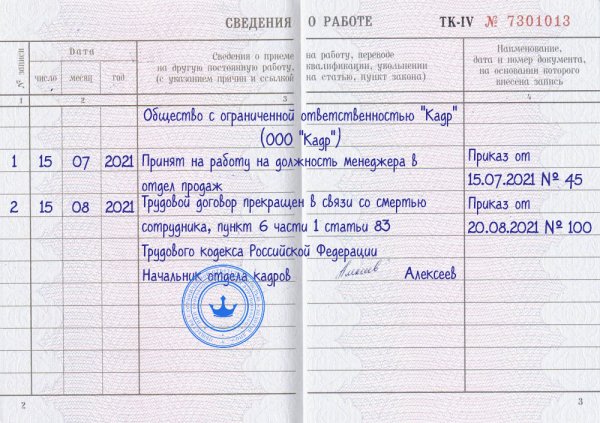 СВЕДЕНИЯ О РАБОТЕ ТК-IV № 7301013
№ записи
Дата
число месяц год
Сведения о приеме на работу, переводе
на другую постоянную работу, квалификации, увольнении
(с указанием причин и ссылкой на статью, пункт закона)
Наименование,
дата и номер документа,
на основании которого
внесена запись
1 2 3 4
Общество с ограниченной ответственностью "Кадр"
(ООО "Кадр")
1 15 07 2021 Принят на работу на должность менеджера в Приказ от
отдел продаж 15.07.2021 № 45
2 15 08 2021 Трудовой договор прекращен в связи со смертью Приказ от
сотрудника, пункт 6 части 1 статьи 83 20.08.2021 № 100
Трудового кодекса Российской Федерации
Начальник отдела кадров Алексеев
2 3